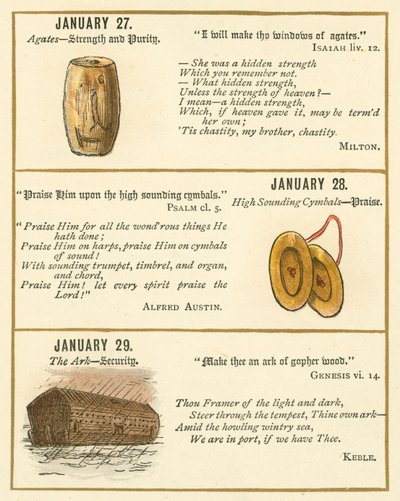 JANUARY 27.
Agates—Strength and Purity.
"I will make thy windows of agates."
ISAIAH liv. 12.
— She was a hidden strength
Which you remember not.
— What hidden strength,
Unless the strength of heaven?—
I mean—a hidden strength,
Which, if heaven gave it, may be term'd
her own;
'Tis chastity, my brother, chastity.
MILTON.
"Praise Him upon the high sounding cymbals."
PSALM cl. 5.
"Praise Him for all the wond'rous things He
hath done;
Praise Him on harps, praise Him on cymbals
of sound!
With sounding trumpet, timbrel, and organ,
and chord,
Praise Him! let every spirit praise the
Lord!"
ALFRED AUSTIN.
JANUARY 28.
High Sounding Cymbals—Praise.
JANUARY 29.
The Ark—Security.
"Make thee an ark of gopher wood."
GENESIS vi. 14.
Thou Framer of the light and dark,
Steer through the tempest, Thine own ark—
Amid the howling wintry sea,
We are in port, if we have Thee.
KEBLE.